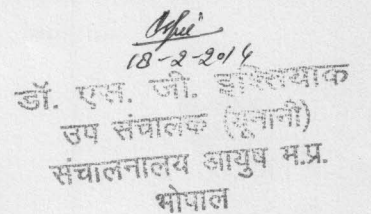 18-2-2014
डॉ. एस. जी. इश्तियाक
उप संचालक (यूनानी)
संचालनालय आयुष म.प्र.
भोपाल